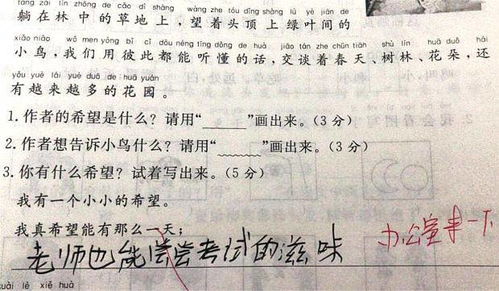 tǎng zài lín zhōng de cǎo dì shàng wàng zhe tóu dǐng shàng lǜ yè jiān de
躺在林中的草地上，望着头顶上绿叶间的
xiǎo niǎo wǒ men yòng bǐ cǐ dōu néng tīng dǒng de huà jiāo tán zhe chūn tiān shù lín huā duǒ hái
小鸟，我们用彼此都能听懂的话，交谈着春天、树林、花朵，还
yǒu yuè lái yuè duō de huā yuán
有越来越多的花园。
1.作者的希望是什么？请用“______”画出来。（3分）
2.作者想告诉小鸟什么？请用“﹏﹏﹏”画出来。（3分）
3.你有什么希望？试着写出来。（5分）
我有一个小小的希望。
我真希望能有那么一天：
老师也能尝尝考试的滋味
办公室来一下
kuài lè xiě huà